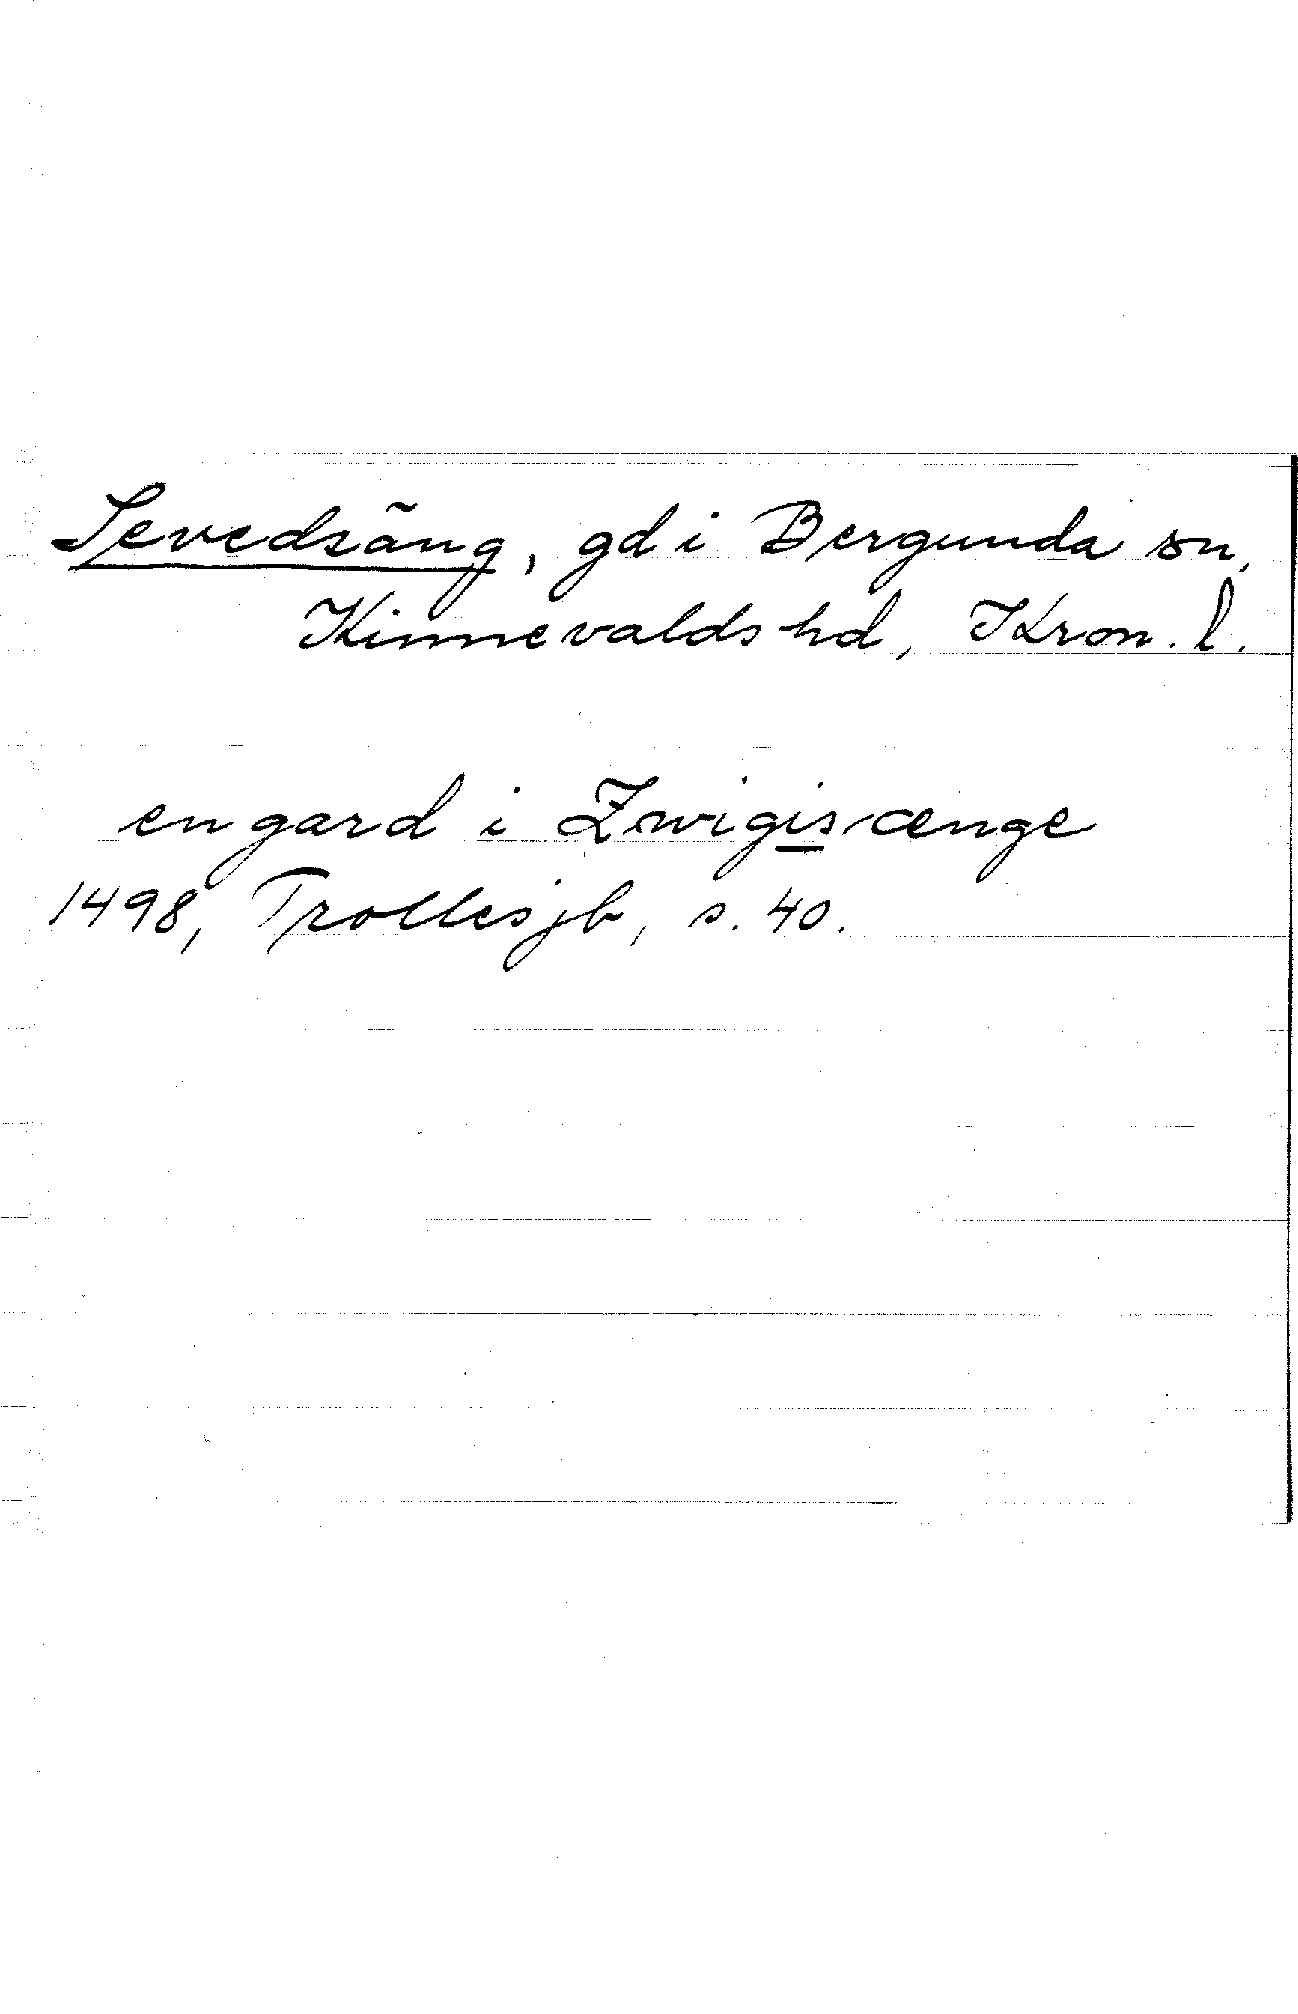 Sevedsäng, gd i Bergunda sn,
Kinnevalds hd, Kron. l.
en gard i Zwigisænge
1498, Trolles jb, s. 40.